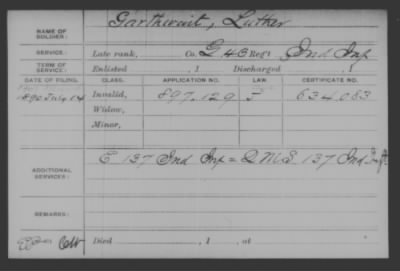 NAME OF SOLDIER: Garthwait, Luther
SERVICE: Late rank, Co. G 43 Reg't Ind Inf
TERM OF SERVICE: Enlisted , 1 Discharged , 1
DATE OF FILING. CLASS. APPLICATION NO. LAW. CERTIFICATE NO.
1890 July 14 Invalid, 897.129 J 634.083
Widow,
Minor,
ADDITIONAL SERVICES: E 137 Ind Inf = Q.M.S. 137 Ind Inf
REMARKS:
Died , 1 , at